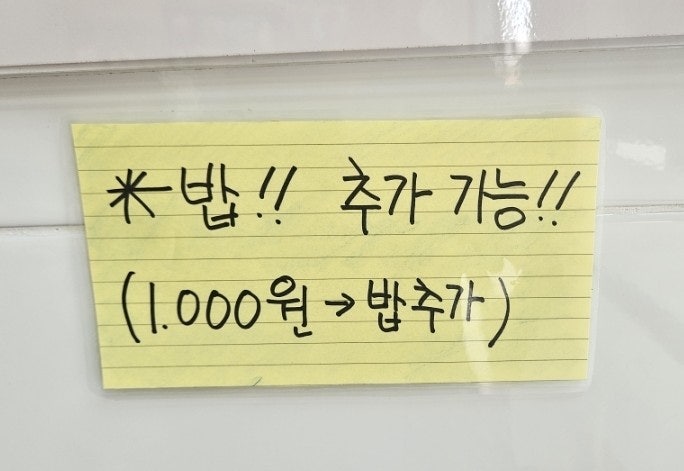 *밥!! 추가 가능!!
(1.000원→밥추가)